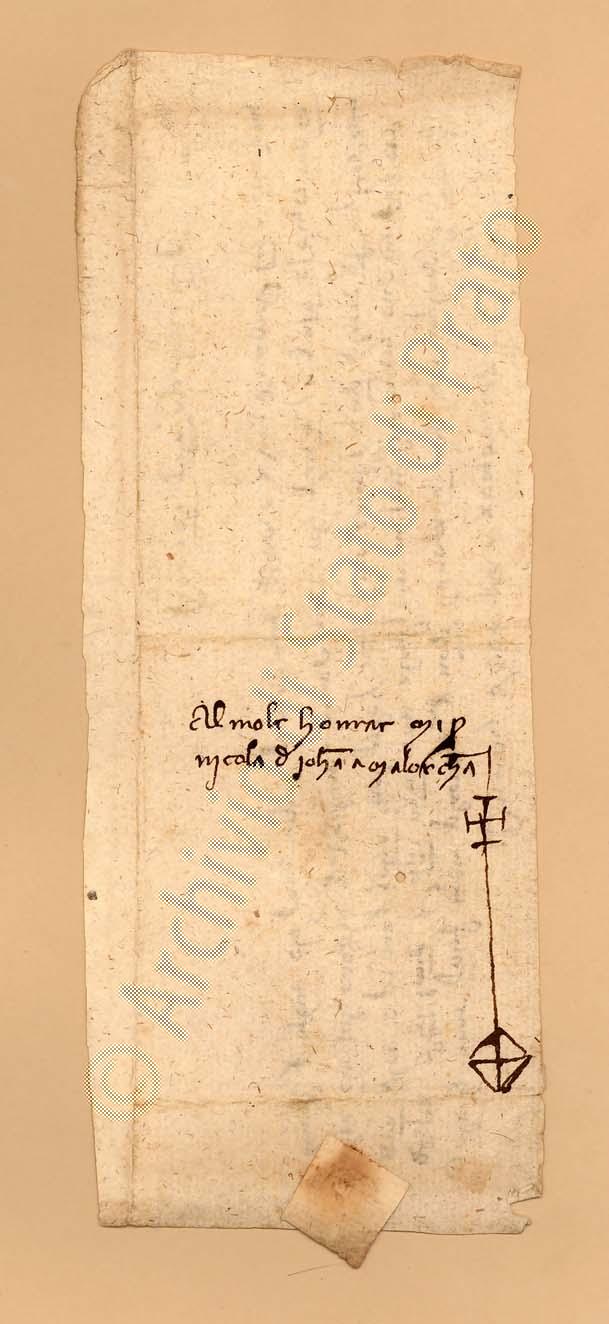 Al molt honrat mis
nicola d johan a malorcha
© Archivio di Stato di Prato